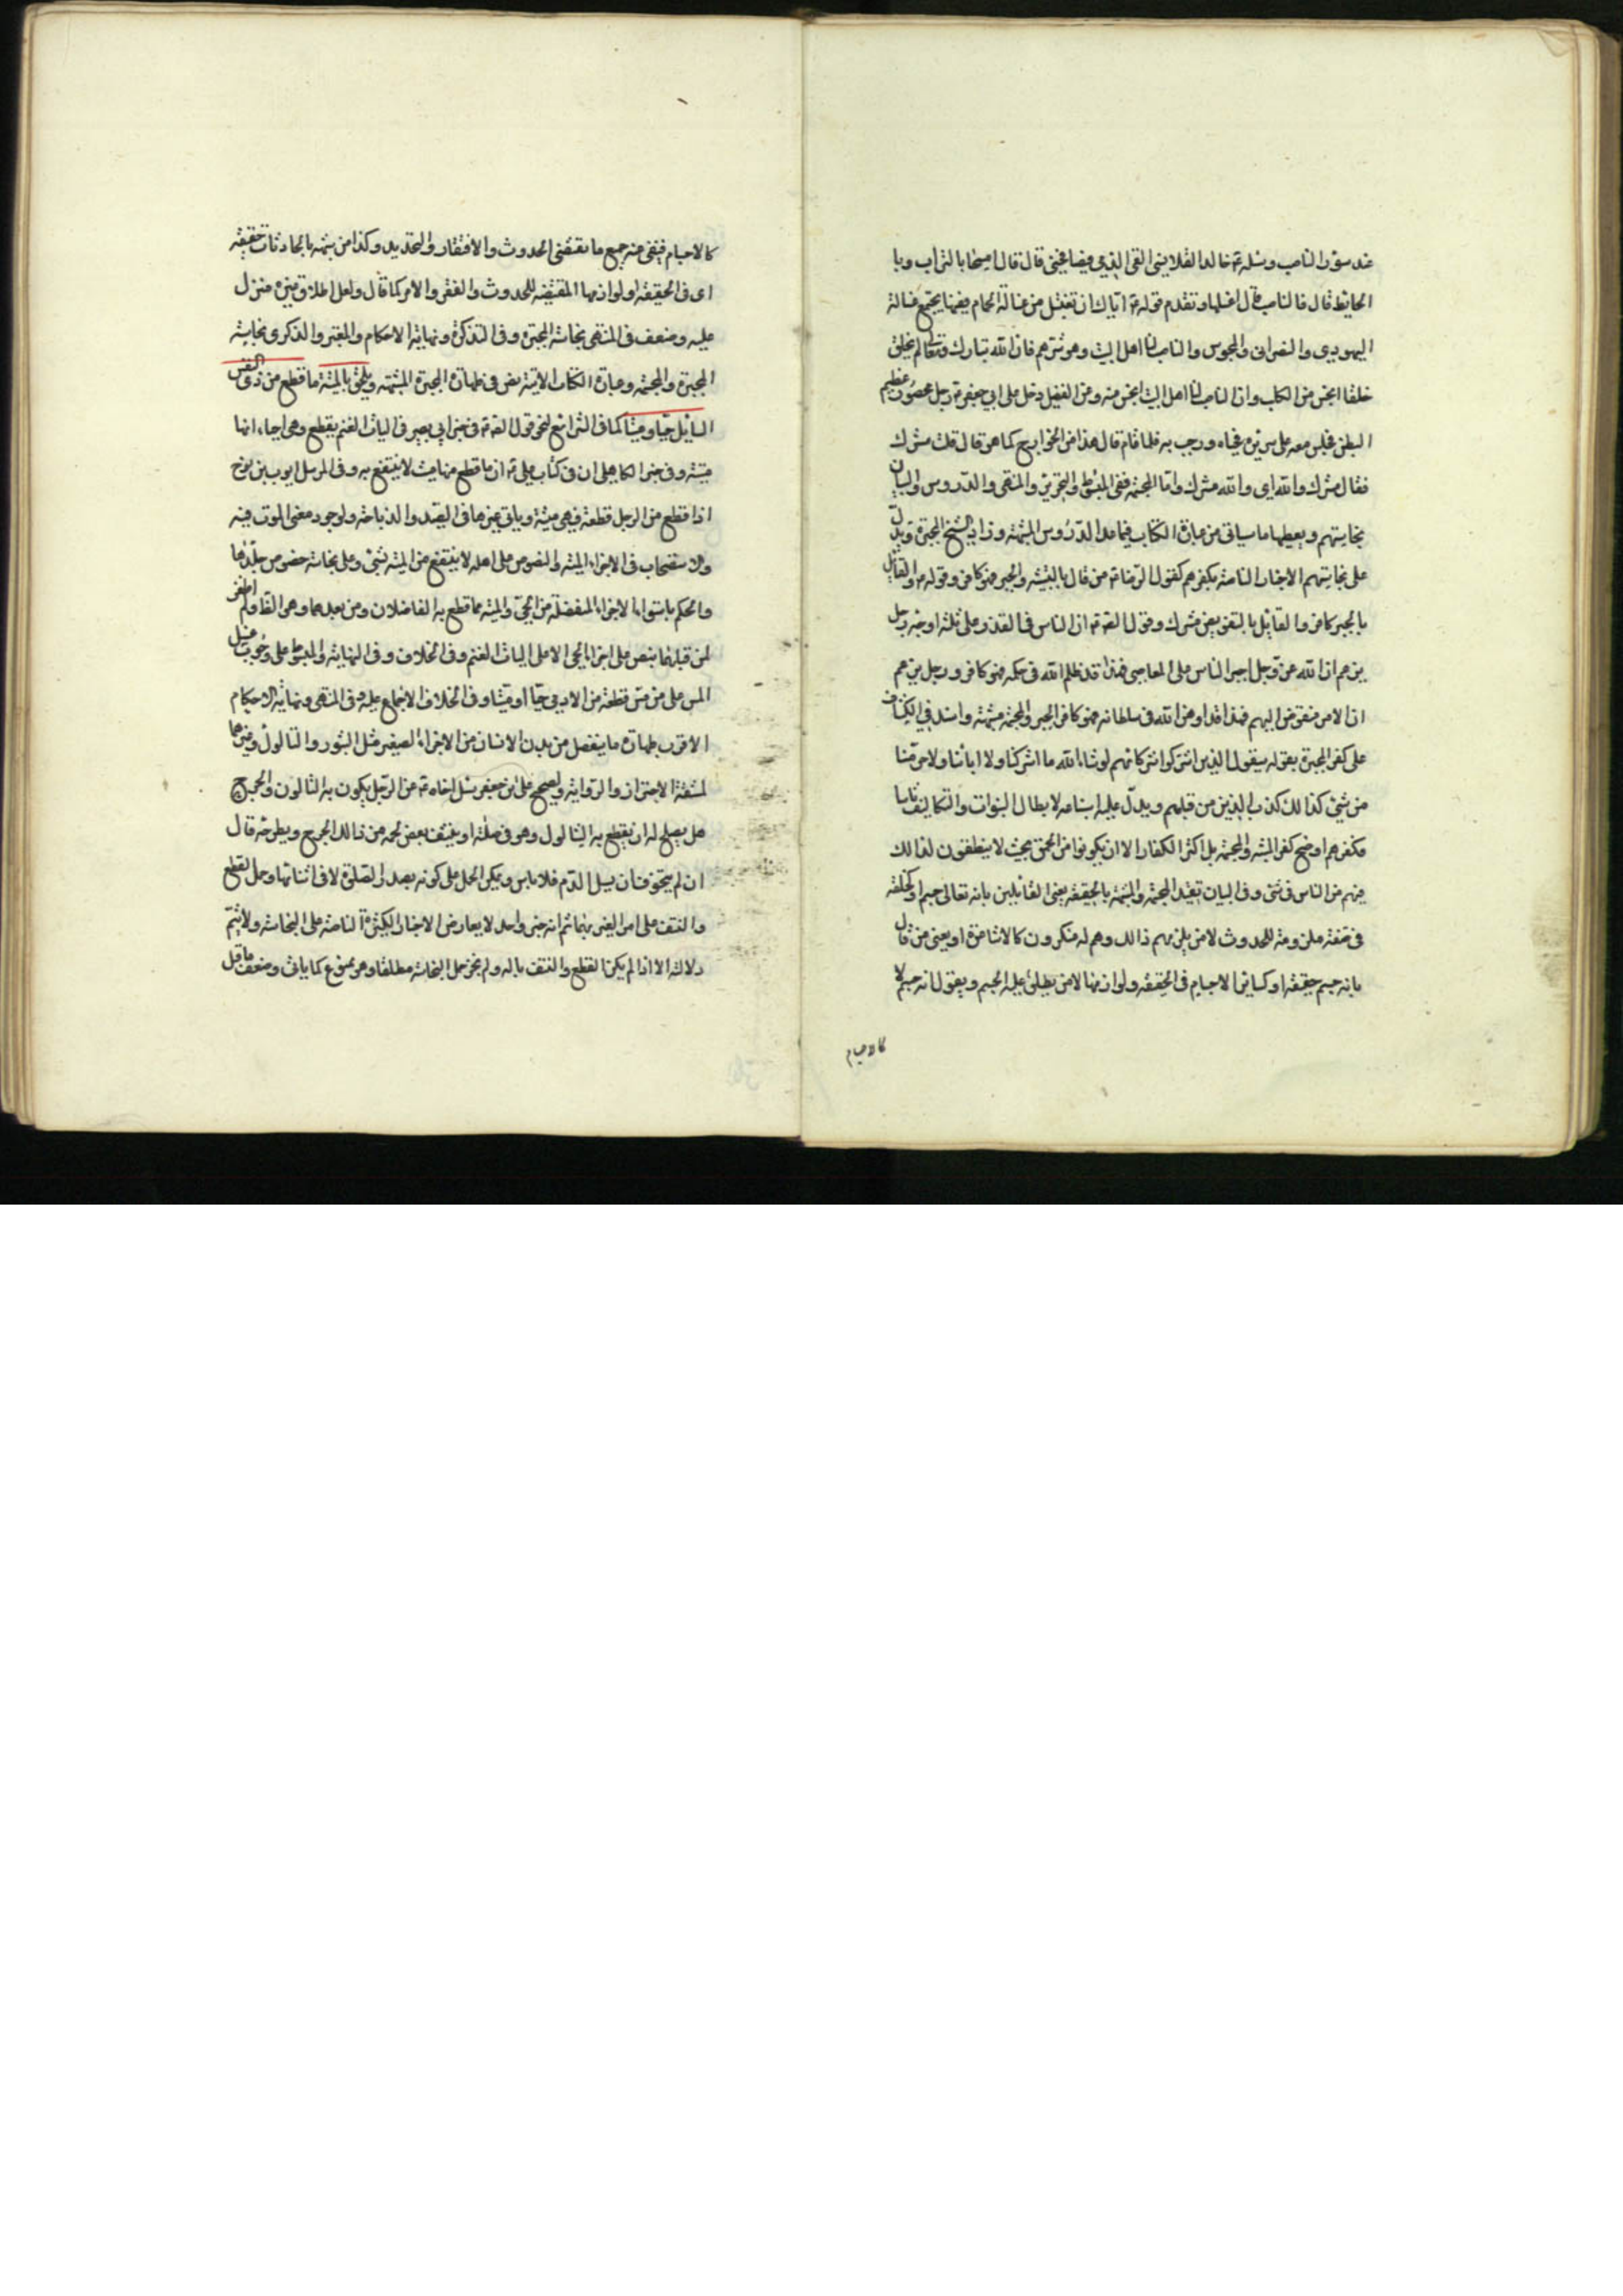 عنده سؤر الناصب وسئله ع خالد القلانسي القى الذمي فيصافحني قال قال امسحها بالتراب وبا
الحايط قال فالناصب قال اغسلها وتقدم قوله ع اياك ان تغتسل من غسالة الحمام ففيها يجتمع غسالة
اليهودي والنصراني والمجوس والناصب لنا اهل البيت وهو شرهم فان الله تبارك وتعالى لم يخلق
خلقا انجس من الكلب وان الناصب لنا اهل البيت انجس منه وعن الفضيل دخل على ابي جعفر ع رجل محصور عظيم
البطن فجلس معه على سريره فحياه ورحب به فلما قام قال هذا من الخوارج كما هو قال قلت مشرك
فقال مشرك والله اي والله مشرك واما المجسمة ففي المبسوط والتحرير والمنتهى والدروس والبيان
نجاستهم ويعطيها ما سياتي من عبارة الكتاب فيما عدا الدروس المشبهة وزاد الشيخ المجبرة ويدل
على نجاستهم الاخبار الناصة بكفرهم كقول الرضا ع من قال بالتشبيه والجبر فهو كافر وقوله ع والقائل
بالجبر كافر والقائل بالتفويض مشرك وقول الصادق ع ان الناس في القدر على ثلثة اوجه رجل
يزعم ان الله عز وجل اجبر الناس على المعاصي فهذا قد ظلم الله في حكمه فهو كافر ورجل يزعم
ان الامر مفوض اليهم فهذا قد اوهن الله في سلطانه فهو كافر والجبر والمجسمة مشبهة واستدل في الكشاف
على كفر المجبرة بقوله سيقول الذين اشركوا شركاتهم لو شاء الله ما اشركنا ولا اباؤنا ولا حرمنا
من شيئ كذلك كذب الذين من قبلهم ويدل عليه استلزامه لابطال النبوات والتكاليف راسا
فكفرهم اوضح كفر المشبه والمجسمه بل اكثر الكفار الا ان يكونوا من الحمق بحيث لا يتفطنون لذلك
منهم من الناس في شئ وفي البيان تقييد المجسمه والمشبهه بالحقيقه يعني القائلين بانه تعالى جسم او كخلقه
في صفته ملزومه للحدوث لا من يلزمهم ذالك وهم له منكرون كالاشاعرة او يعني من قال
بانه جسم حقيقه او كساير الاجسام في الحقيقه ولوازمها لا من يطلق عليه الجسم ويقول انه جسم لا
كالاجسام
كالاجسام فينفي عنه جميع ما يقتضي الحدوث والافتقار والتحديد وكذا من يشبه بالحادثات حقيقه
اي في الحقيقه او لوازمها المقتضيه للحدوث والفقر والامر كما قال ولعل اطلاق غيره منزل
عليه وضعف في المنتهى نجاسة المجبرة وفي التذكرة ونهاية الاحكام والمعتبر والذكرى نجاسة
المجبرة والمجسمه وعبارة الكتاب الاتية نص في طهارة المجبرة المشبهه ويلحق بالميتة ما قطع من ذي النفس
السائل حيا وميتا كما في الشرايع لنحو قول الصادق ع في خبر ابي بصير في اليات الغنم يقطع وهي احياء انها
ميتة وفي خبر الكاهلي ان في كتاب علي ع ان ما قطع منها ميت لا ينتفع به وفي المرسل ايوب بن نوح
اذا قطع من الرجل قطعة فهي ميتة وياتي غيرها في الصيد والذباحة ولوجود معنى الموت فيه
والاستصحاب في الاجزاء الميتة والنصوص على اهله لا ينتفع من الميتة بشئ وعلى نجاسة خصوص جلدها
والحكم باستواء الاجزاء المنفصلة من الحي والميتة مما قطع به الفاضلان ومن بعدهما وهو الظاهر ولم اظفر
لمن قبلهما بنص على اجزاء الحي الا على اليات الغنم وفي الخلاف وفي النهاية والمبسوط على وجوب غسل
المس على من مس قطعة من الادمي حيا او ميتا وفي الخلاف الاجماع عليه وفي المنتهى ونهاية الاحكام
الاقرب طهارة ما ينفصل من بدن الانسان من الاجزاء الصغيره مثل البثور والثالول وغيرهما
لمشقة الاحتراز والرواية ولصحيح علي بن جعفر سئل اخاه ع عن الرجل يكون به الثالول والجرح
هل يصلح له ان يقطع به الثالول وهو في صلاته او ينتف بعض لحمه من ذالك الجرح ويطرحه قال
ان لم يتخوف ان يسيل الدم فلا باس ويمكن الحمل على كونه بصدد الصلوة لا في اثنائها وحمل القطع
والنتف على امر الغير بهما ثم انه خبر واحد لا يعارض الاخبار الكثيرة الناصة على النجاسة ولا يتم
دلالته الا اذا لم يكن القطع والنتف باله ولم يجز حمل النجاسة مطلقا وهو ممنوع كما ياتي وضعف ما قيل